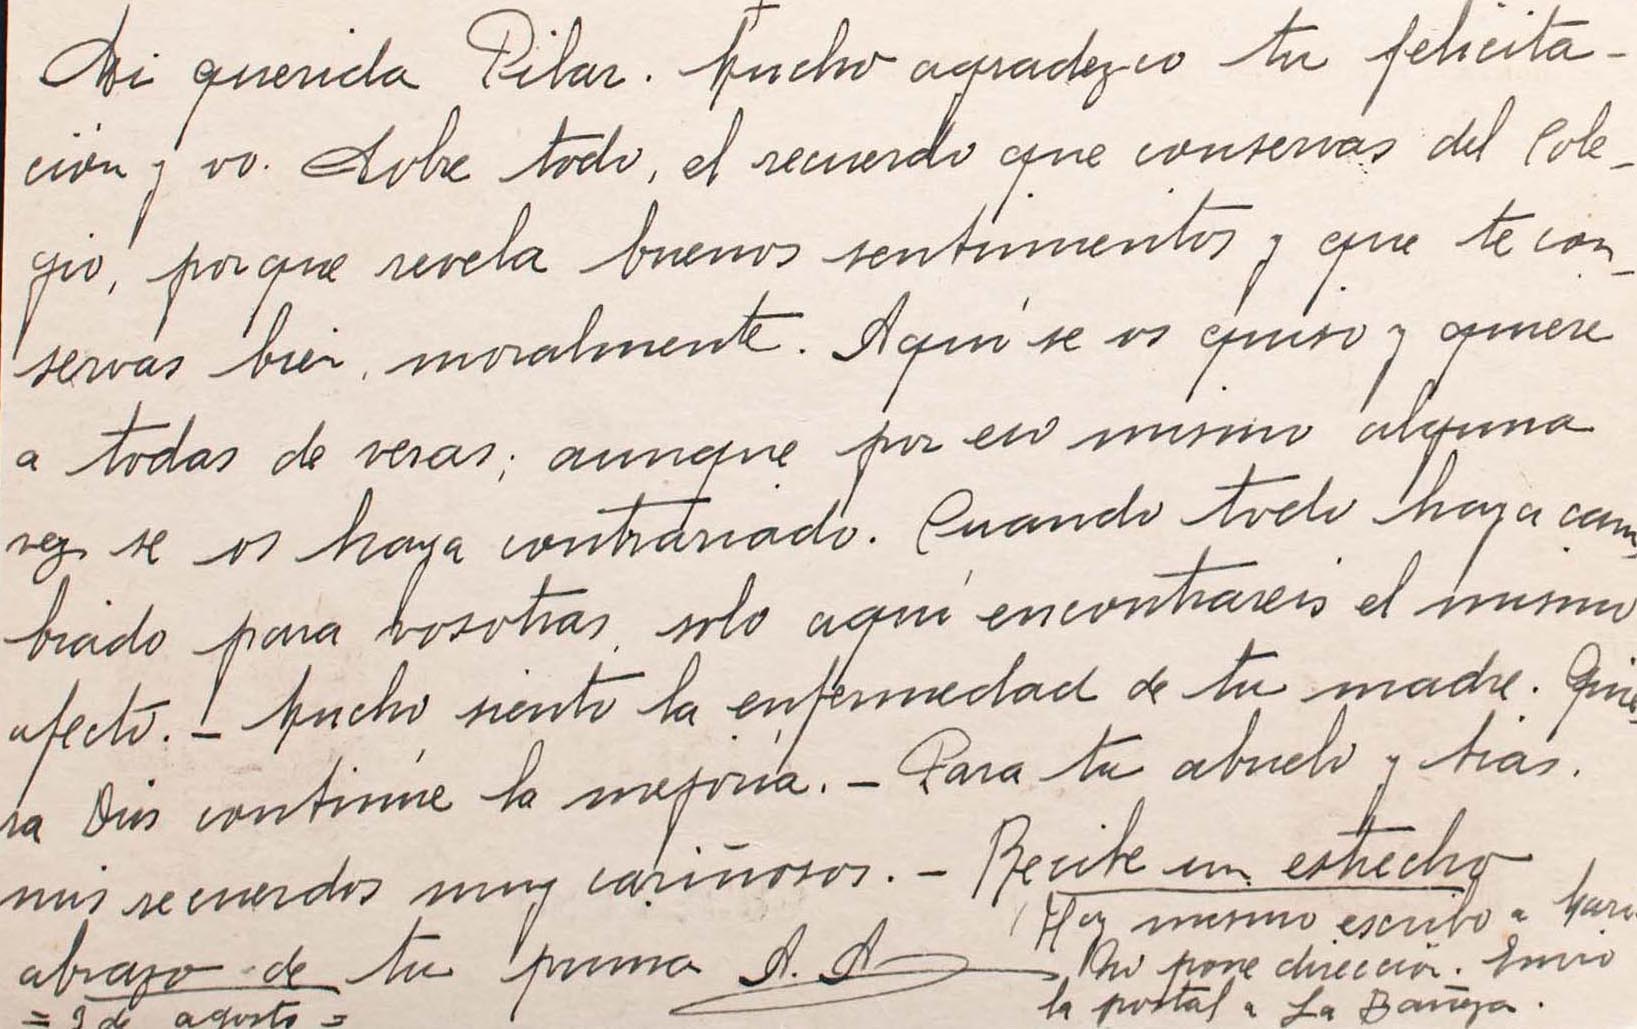 Mi querida Pilar. Mucho agradezco tu felicita-
ción y vo. Sobre todo, el recuerdo que conservas del Cole-
gio, porque revela buenos sentimientos y que te con-
servas bien, moralmente. Aquí se os quiso y quiere
a todas de veras; aunque por eso mismo alguna
vez se os haya contrariado. Cuando todo haya cam-
biado para vosotras, solo aquí encontrareis el mismo
afecto. - Mucho siento la enfermedad de tu madre. Quie-
ra Dios continúe la mejoría. - Para tu abuelo y tias.
mis recuerdos muy cariñosos. - Recibe un estrecho
abrazo de tu prima A. A
= 2 de agosto =
Hoy mismo escribo a
No pone dirección. Envio
la postal a La Bañeza.